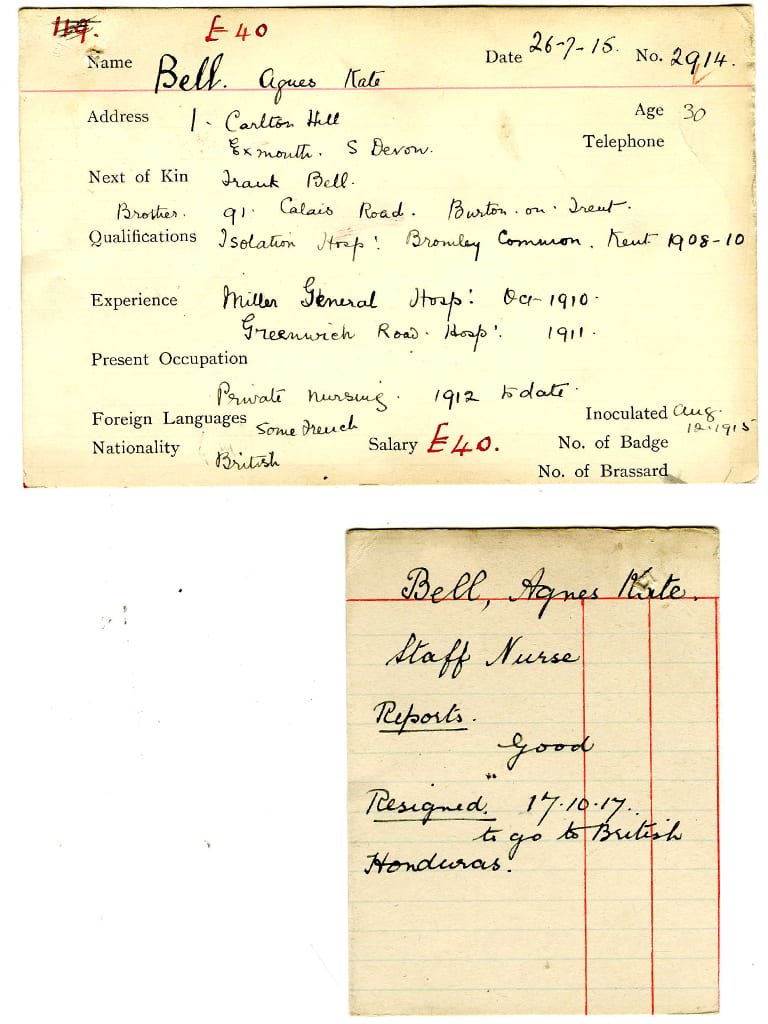 119. £40
Name Bell. Agnes Kate Date 26-7-15. No. 2914.
Address 1. Carlton Hill Age 30
Exmouth. S Devon. Telephone
Next of Kin Frank Bell.
Brother. 91. Calais Road. Burton-on-Trent.
Qualifications Isolation Hosp: Bromley Common. Kent 1908-10
Experience Miller General Hosp: Oct 1910.
Greenwich Road. Hosp: 1911.
Present Occupation
Private nursing. 1912 to date.
Foreign Languages Some French Inoculated Aug. 12.1915
Nationality British Salary £40. No. of Badge
No. of Brassard
Bell, Agnes Kate.
Staff Nurse
Reports.
Good
Resigned. 17.10.17.
to go to British
Honduras.